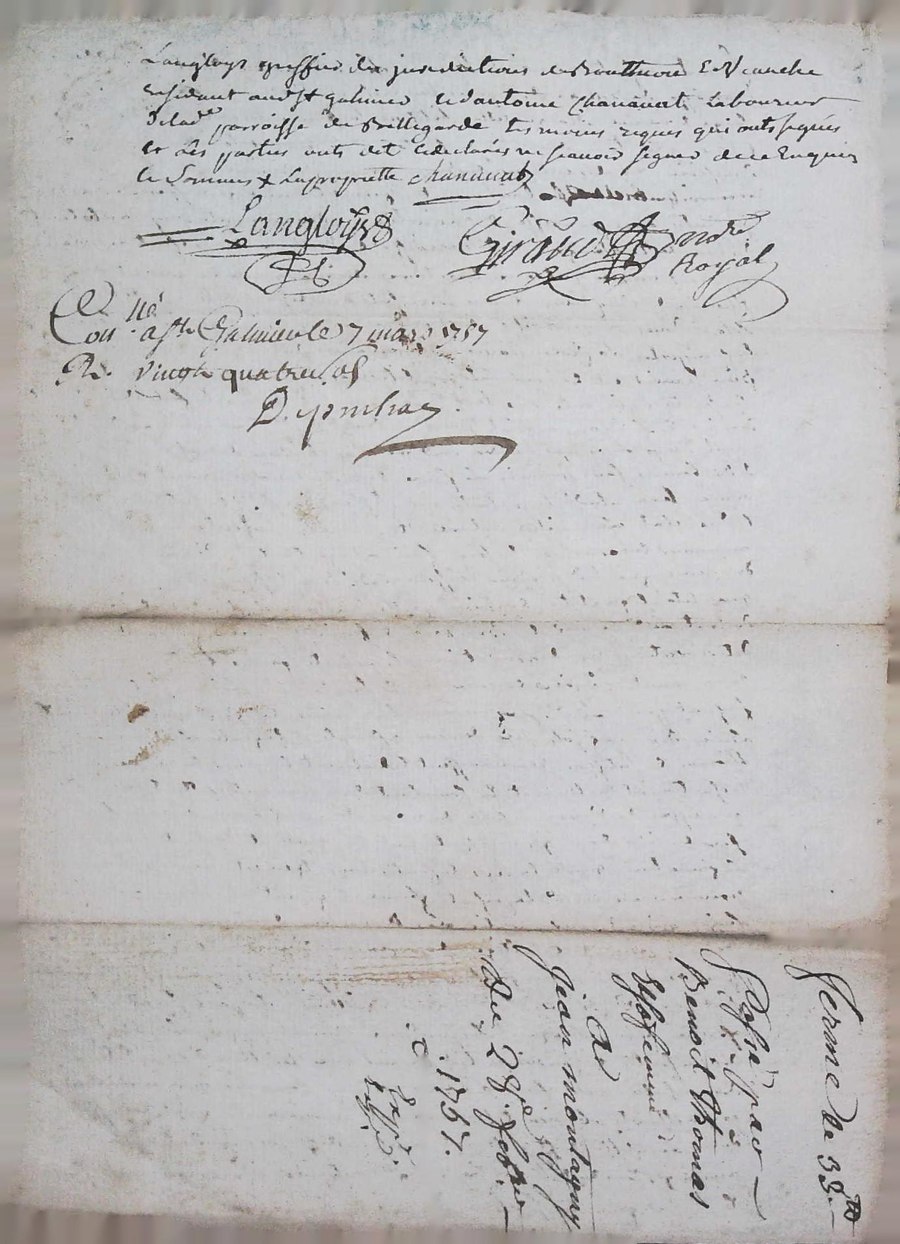 Langloys greffier des jurisdictions de Bouttheon E Veauche
Residant audt St galmier et d'antoine Chanavat Laboureur
de lad. parroisse de Bellegarde tesmoins requis qui onts signés
et Les parties onts dit et declarés ne scavoir signer de ce Enquis
et Sommés Chanavat
Langloys
Giraud nore
Royal
Con.lé a St Galmier le 7 mars 1757
R. vingt quatre sols
ferme de 33
Passé par
Benoit Thomas
a
Jean montagny
Du 28e febr
1757.